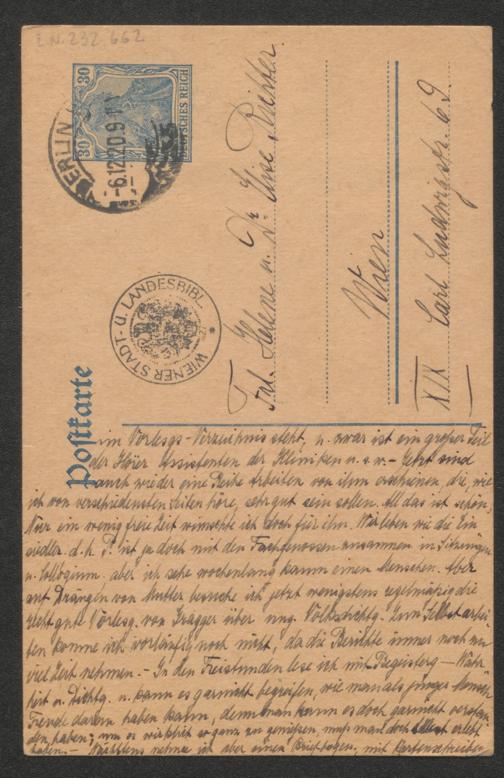 L.N. 232.662
30 30
DEUTSCHES REICH
BERLIN
-6.12.20.9-
WIENER STADT- U. LANDESBIBL.
Postkarte
Frl. Helene u. Dr. Elise Richter
Wien
XIX Carl Ludwigstr. 69
im Vorlesgs-Verzeichnis steht, u. zwar ist ein großer Teil
der Hörer Assistenten der Kliniken u.s.w. - Jetzt sind
auch wieder eine Reihe Arbeiten von ihm erschienen, die, wie
ich von verschiedensten Seiten höre, sehr gut sein sollen. All das ist schön.
Nur ein wenig freie Zeit wünschte ich doch für ihn. Wir leben wie die Ein
siedler d.h. P. ist ja doch mit den Fachgenossen zusammen in Sitzungen
u. Colloquium, aber ich sehe wochenlang kaum einen Menschen. Aber
auf Drängen von Mutter besuche ich jetzt wenigstens regelmäßig die
sehr gute Vorlesg. von Gragger über ung. Volksdichtg. Zum Selbstarbei
ten komme ich vorläufig noch nicht, da die Berichte immer noch zu
viel Zeit nehmen. - In den Freistunden lese ich mit Begeisterg - Wahr
heit u. Dichtg. u. kann es garnicht begreifen, wie man als junger Mensch
Freude daran haben kann, denn man kann es doch garnicht verstan
den haben; um es wirklich so ganz zu genießen, muß man doch selbst erlebt
haben. - Nächstens nehme ich aber einen Briefbogen, mit Kartenschreiben